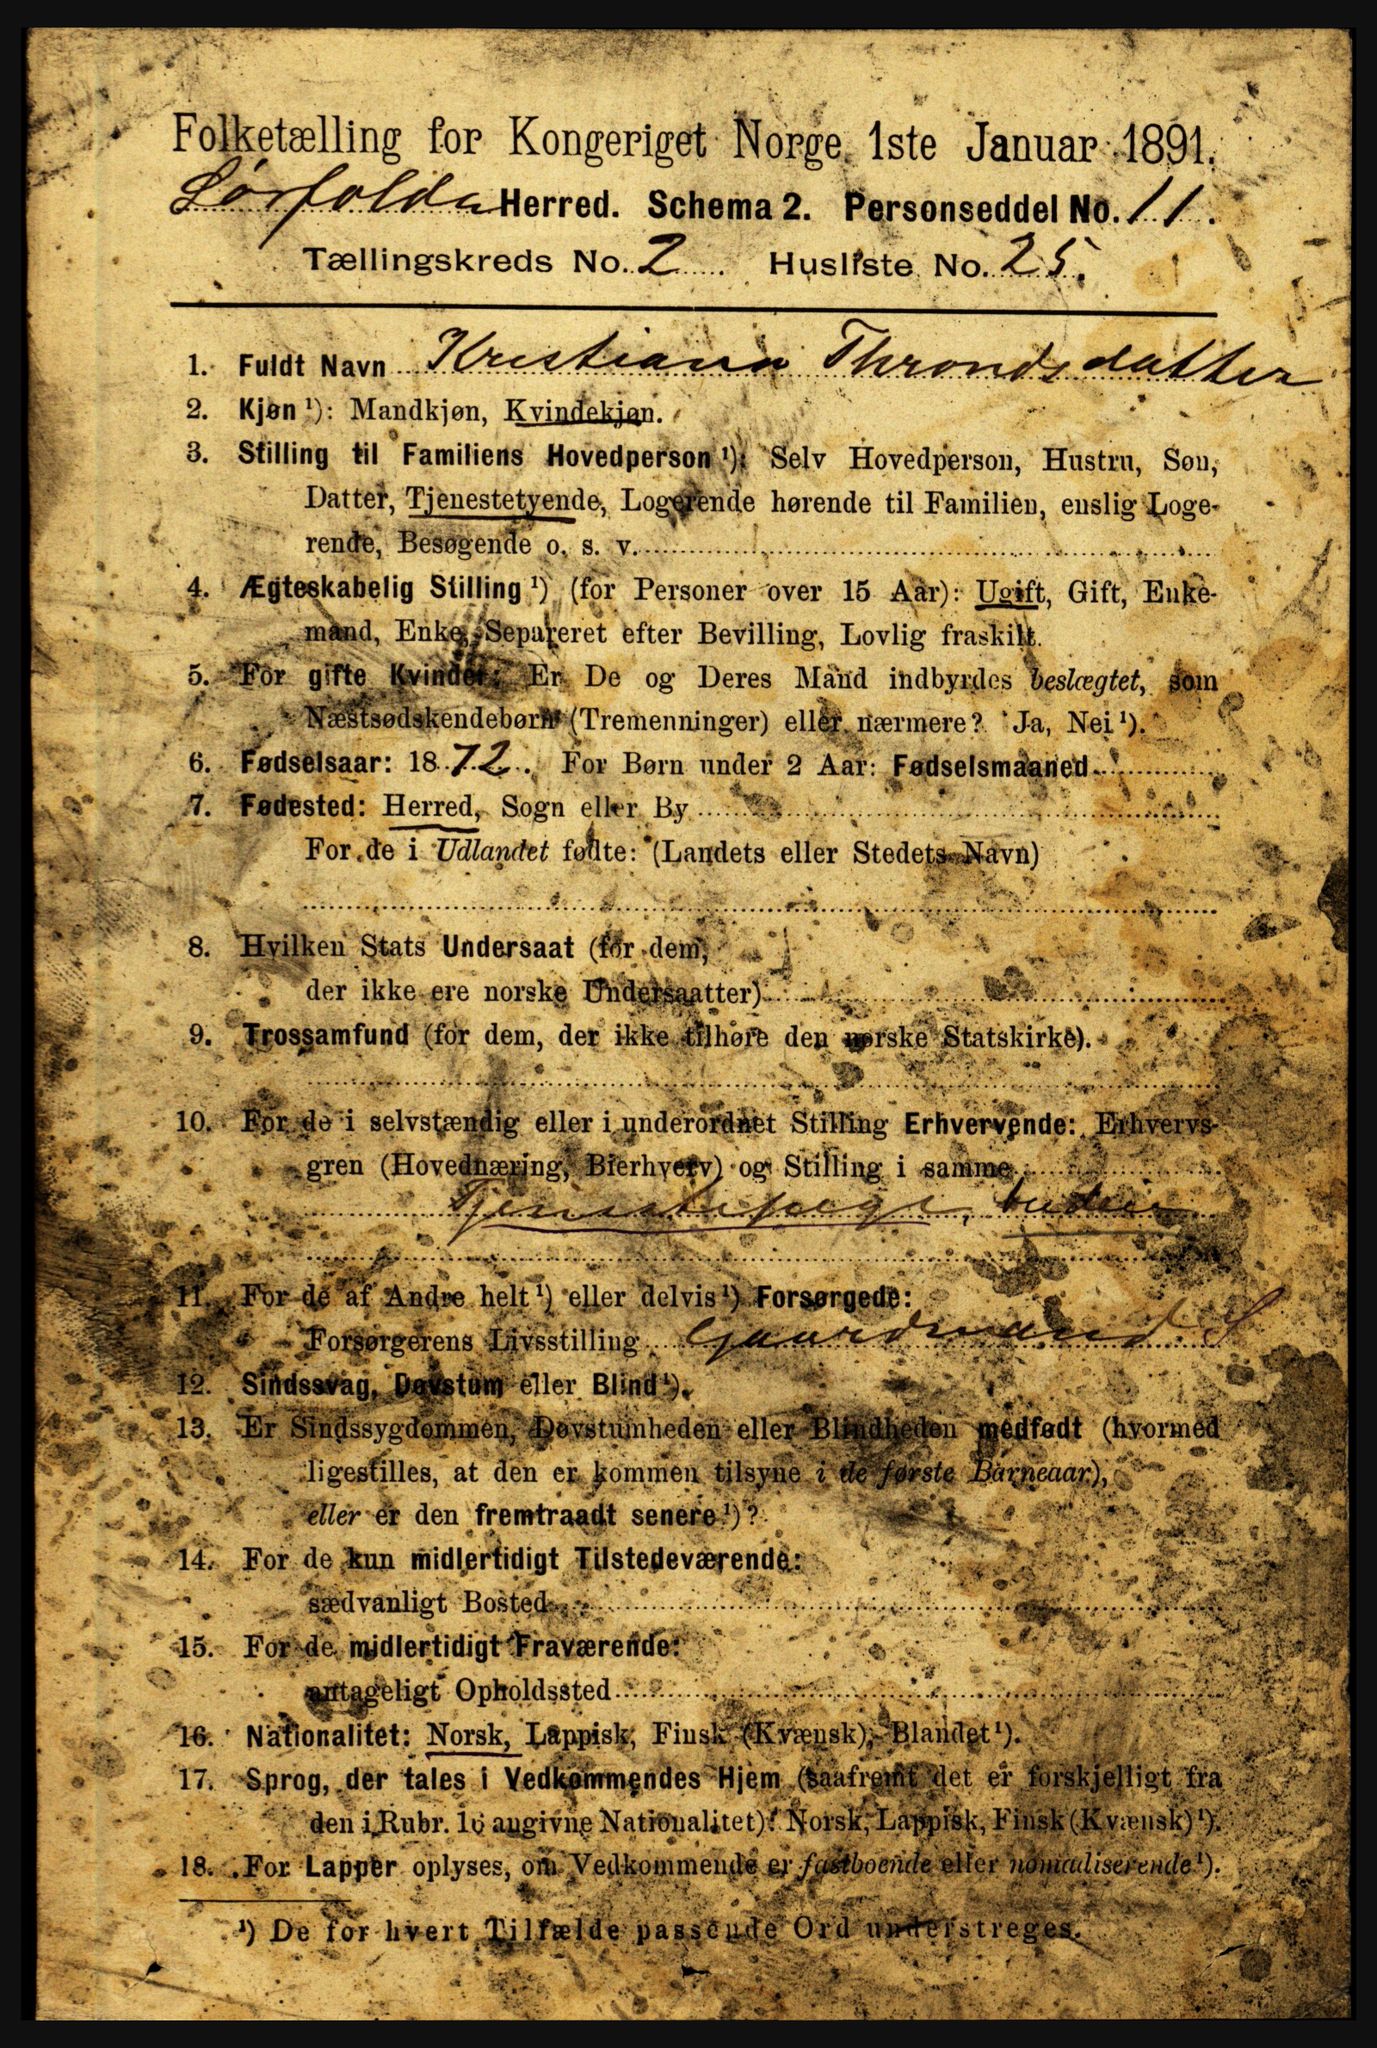 Folketælling for Kongeriget Norge 1ste Januar 1891.
Sørfolden Herred. Schema 2. Personseddel No. 11.
Tællingskreds No. 2. Husliste No. 25.
1. Fuldt Navn Kristiana Throndsdatter
2. Kjøn ¹): Mandkjøn, Kvindekjøn.
3. Stilling til Familiens Hovedperson ¹): Selv Hovedperson, Hustru, Søn,
Datter, Tjenestetyende, Logerende hørende til Familien, enslig Loge-
rende, Besøgende o. s. v.
4. Ægteskabelig Stilling ¹) (for Personer over 15 Aar): Ugift, Gift, Enke-
mand, Enke, Separeret efter Bevilling, Lovlig fraskilt.
5. For gifte Kvinder: Er De og Deres Mand indbyrdes beslægtet, som
Næstsødskendebørn (Tremenninger) eller nærmere? Ja, Nei ¹).
6. Fødselsaar: 1872. For Børn under 2 Aar: Fødselsmaaned
7. Fødested: Herred, Sogn eller By
For de i Udlandet fødte: (Landets eller Stedets Navn)
8. Hvilken Stats Undersaat (for dem,
der ikke ere norske Undersaatter)
9. Trossamfund (for dem, der ikke tilhøre den norske Statskirke).
10. For de i selvstændig eller i underordnet Stilling Erhvervende: Erhvervs-
gren (Hovednæring, Bierhverv) og Stilling i samme
Tjenestepige, budeie
11. For de af Andre helt ¹) eller delvis ¹) Forsørgede:
Forsørgerens Livsstilling Gaardmand S
12. Sindssvag, Døvstum eller Blind ¹).
13. Er Sindssygdommen, Døvstumheden eller Blindheden medfødt (hvormed
ligestilles, at den er kommen tilsyne i de første Barneaar),
eller er den fremtraadt senere ¹)?
14. For de kun midlertidigt Tilstedeværende:
sædvanligt Bosted
15. For de midlertidigt Fraværende:
antageligt Opholdssted
16. Nationalitet: Norsk, Lappisk, Finsk (Kvænsk), Blandet ¹).
17. Sprog, der tales i Vedkommendes Hjem (saafremt det er forskjelligt fra
den i Rubr. 16 angivne Nationalitet): Norsk, Lappisk, Finsk (Kvænsk) ¹).
18. For Lapper oplyses, om Vedkommende er fastboende eller nomadiserende ¹).
¹) De for hvert Tilfælde passende Ord understreges.